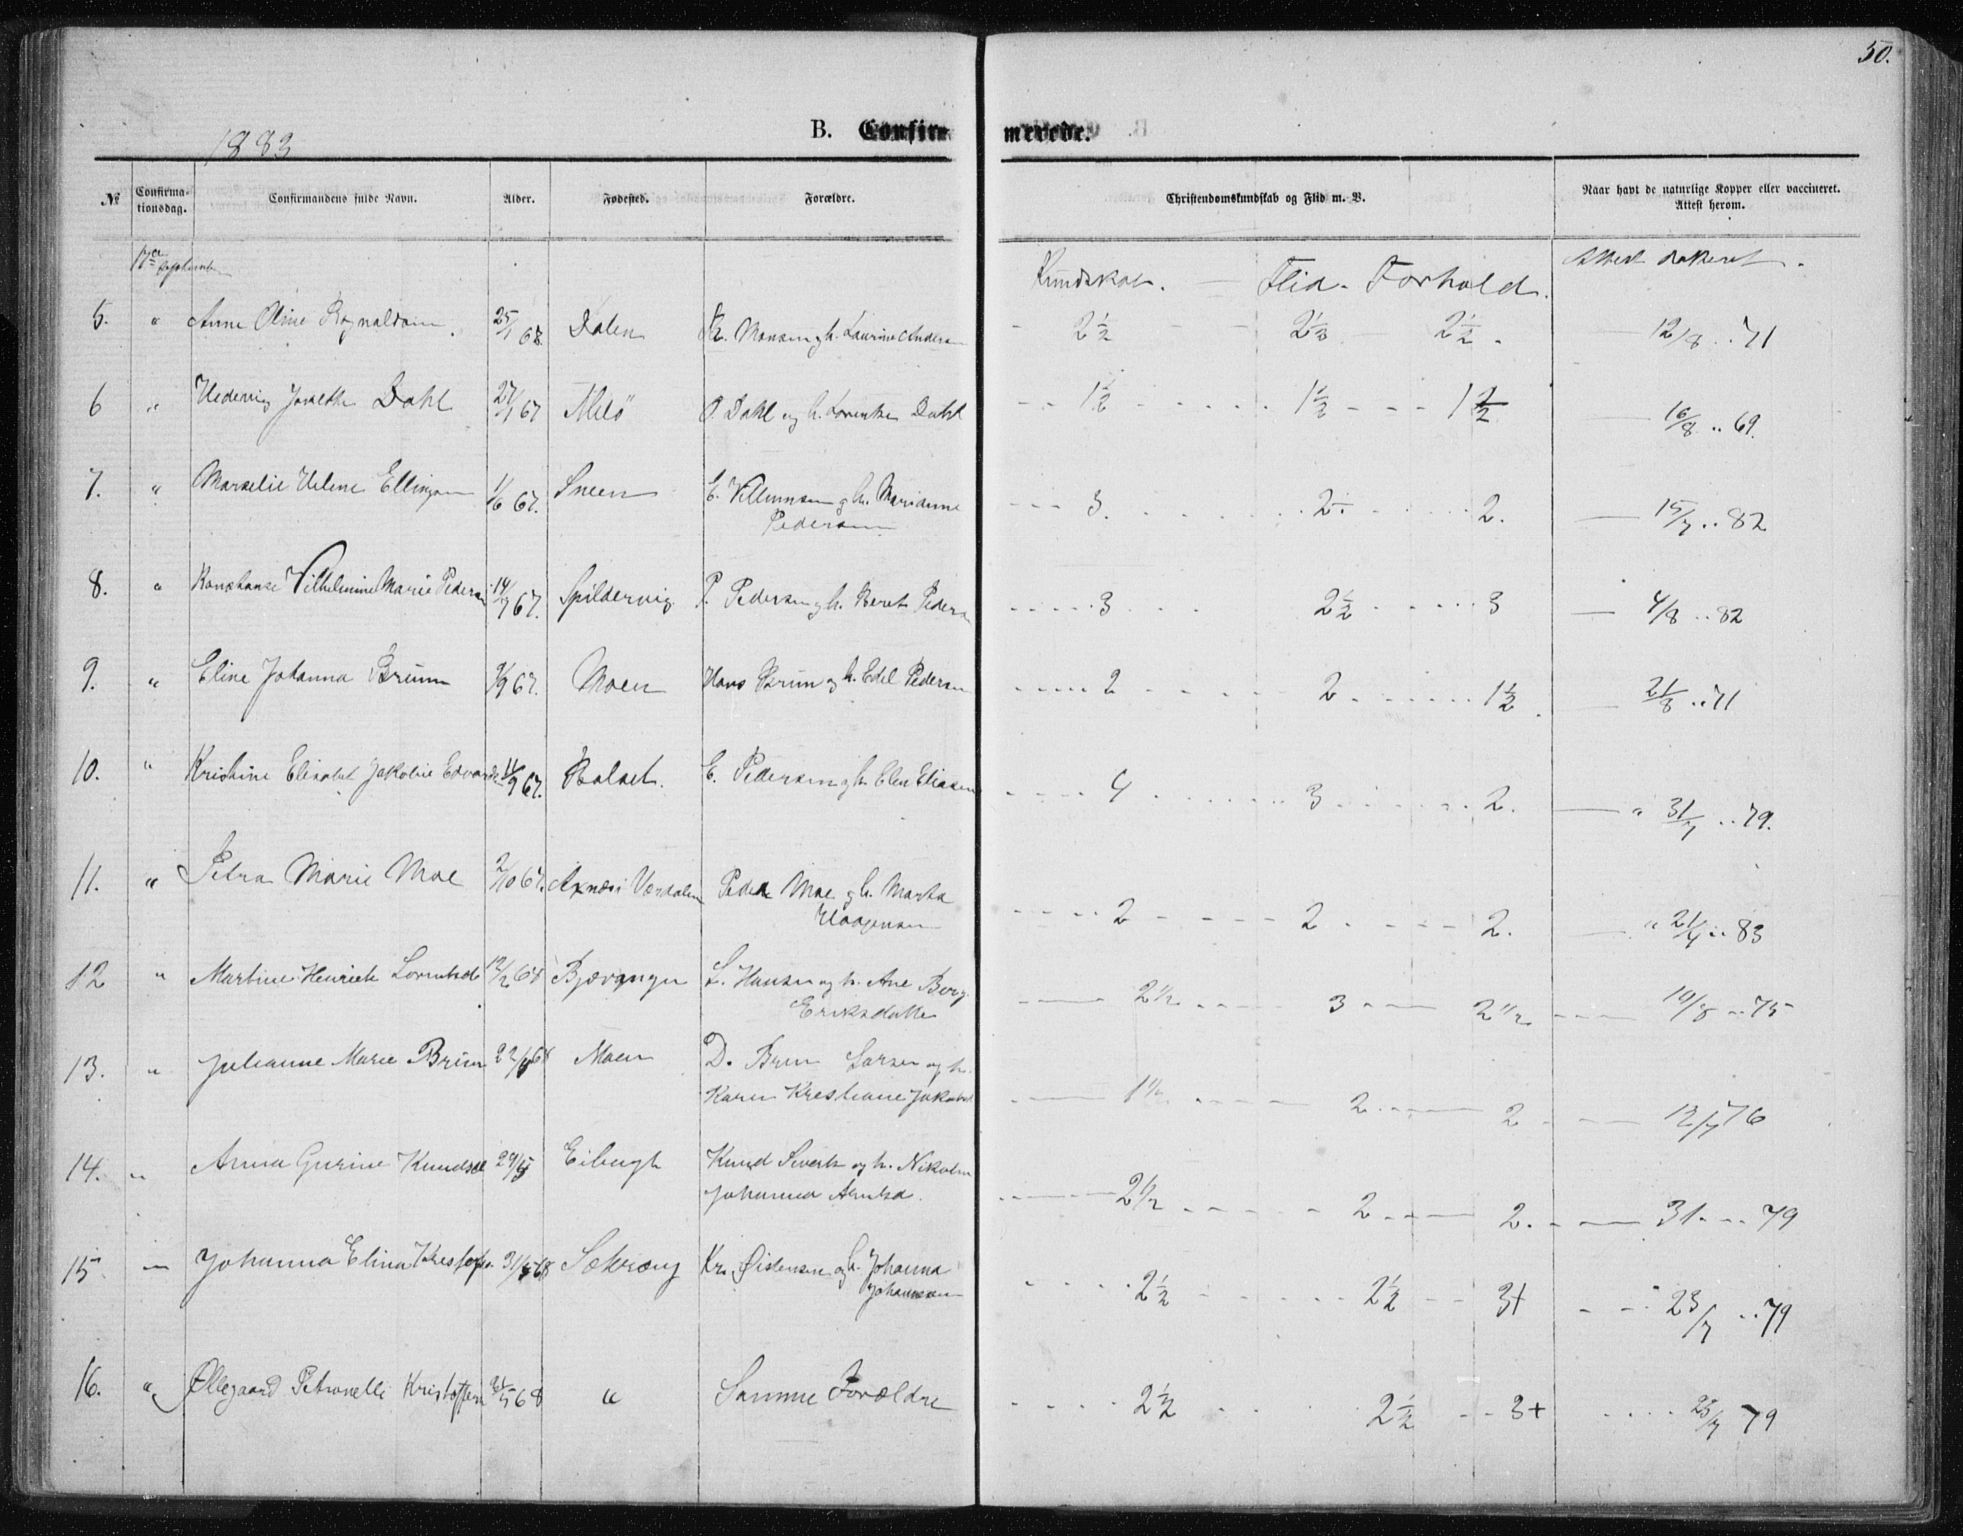 50.
1883
B. Confirmerede.
№ Confirmationsdag. Confirmandens fulde Navn. Alder. Fødested. Forældre. Christendomskundskab og Flid m. V. Naar havt de naturlige Kopper eller vaccineret. Attest herom.
17de September Kundskab. — Flid. Forhold. Attest dateret.
5. " Anne Oline 25/1 68 Dalen R. Monsen og h. Laurine Anders 2½ 2½ 2½. 12/8 .. 71
6 " Hedevig Dahl 27/1 67 Melö O. Dahl og h. Lorentse Dahl 1½ 1½ 1½ 16/8 .. 69.
7. " Marselie Helene Ellingsen 1/6 67. Sneen E. Villumsen og h. Marianne
Pedersen 3. 2÷ 2. 15/7 .. 82
8. " Konstanse Vilhelmine Marie Pedersen 14/7 67. Spildervig P. Pedersen og h. Beret Peders 3 2½ 3 4/8 .. 82
9. " Eline Johanna Bruun 9/9 67. Moen Hans Brun og h. Edel Pedersen 2 2 1½. 21/8 .. 71
10. " Kristine Elisabet Jakobie Edvards 11/9 67. E. Pedersen og h. Elen Eliasen 4 3 2. " 31/7 .. 79.
11. " Petra Marie Moe 2/10 67. Værdalen Peder Moe og h. Marta
Haagensen 2 2 2. " 21/4 .. 83
12 " Martine Henrik 12/2 68 Bjærangen L. Hansen og h. Ane Berg
Eriksdatter 2½ 3 2½ 10/8 .. 75
13. " Julianne Marie Brun 22/ 68 Moen D. Brun Larsen og h.
Karen Krestiane Jakobsd 1½ 2 2 12/7 76
14. " Anna Gurine Knudsd 29/5 Knud Sivert og h. Nikolin
Johanna 2½ 2 2. 31 .. 79
15 — Johanna Elina Kristofs 31/5 68 Kr. Øistensen og h. Johanna
Johannesen 2½ 2½ 3+ 23/7 .. 79
16. " Ollegaard Petronelle Kristoffers 31/5 68 " Samme Forældre 2½ 2½ 3+ 23/7 79